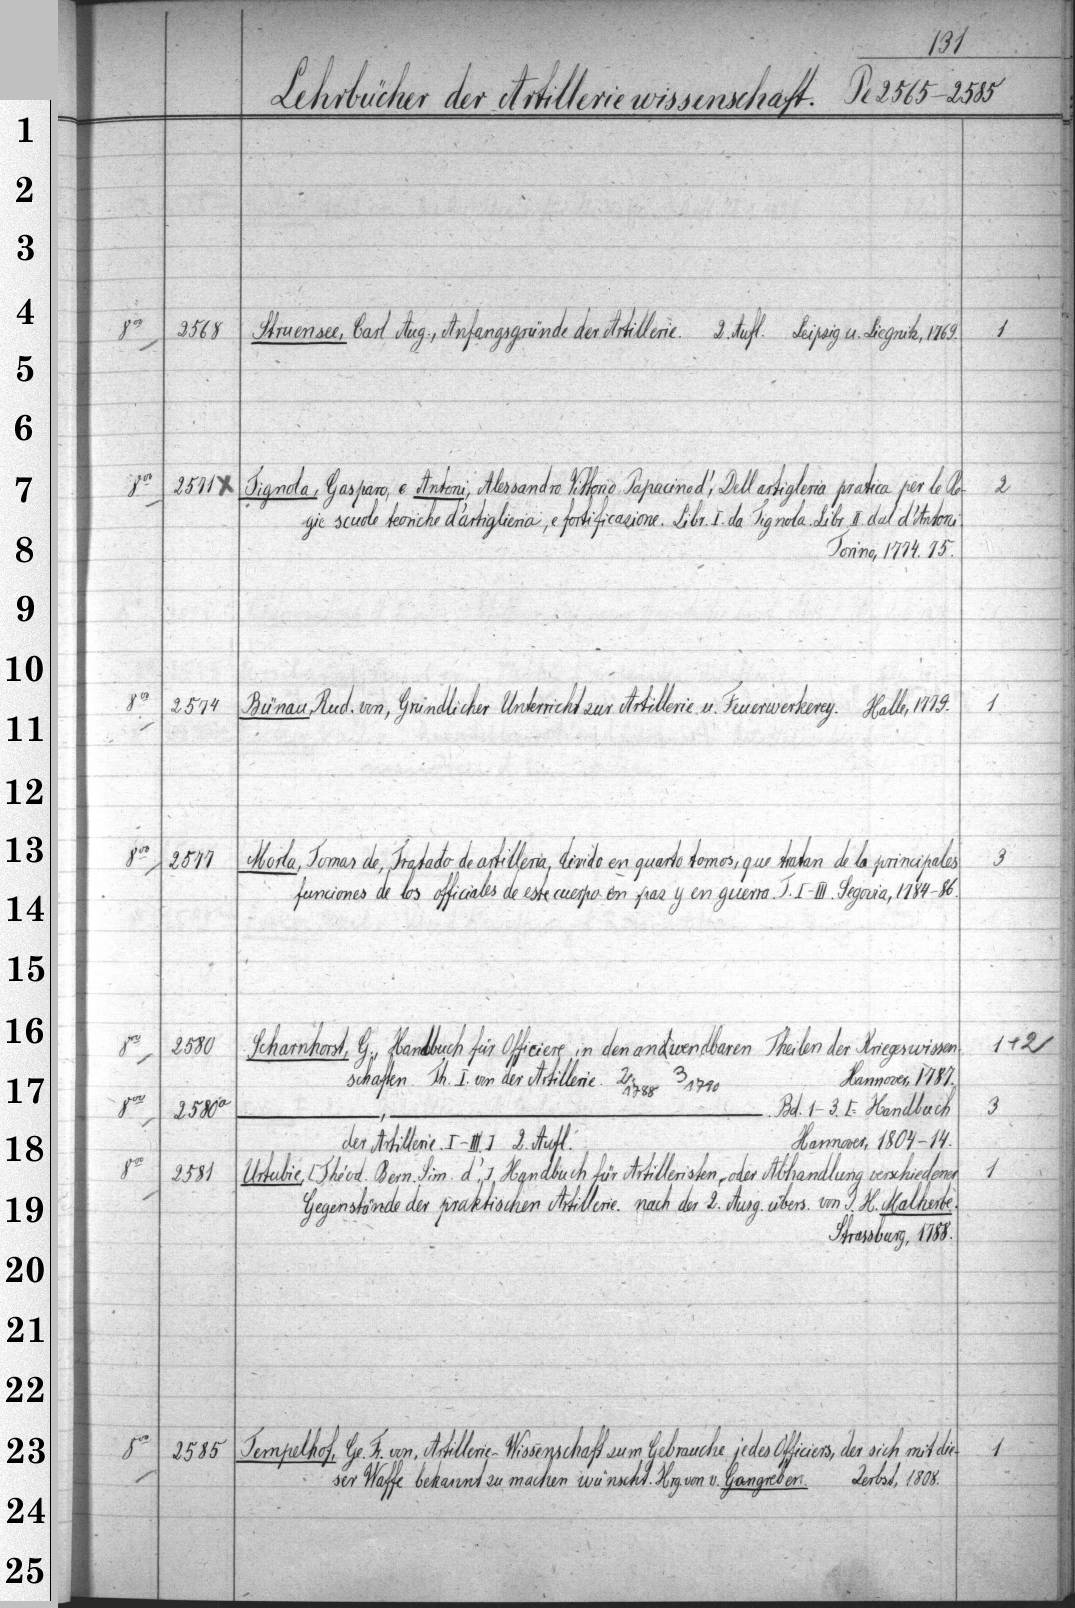 131
Lehrbücher der Artilleriewissenschaft. Pe 2565–2585
1
2
3
4
8vo 2568 Struensee, Carl Aug., Anfangsgründe der Artillerie. 2. Aufl. Leipzig u. Liegnitz, 1769. 1
5
6
7
8vo 2571 x Tignola, Gasparo, e Antoni, Alessandro Vittorio Papacino d', Dell artigleria pratica per le Re-
gie scuole teoriche d'artiglieria, e fortificazione. Libr. I. da Tignola. Libr. II dal d'Antoni
2
8
Torino, 1774. 75.
9
10
8vo 2574 Bünau, Rud. von, Gründlicher Unterricht zur Artillerie u. Feuerwerkerey. Halle, 1779. 1
11
12
13
8vo 2577 Morla, Tomas de, Tratado de artilleria, divido en quarto tomos, que tratan de la principales 3
funciones de los officiales de este cuerpo en paz y en guerra. T. I–III. Segovia, 1784–86.
14
15
16
8vo 2580 Scharnhorst, G., Handbuch für Officiere in den anwendbaren Theilen der Kriegeswissen- 1+2
schaften Th. I. von der Artillerie. 2. 1788 3 1790 Hannover, 1787.
17
8vo 2580a ———, ——— Bd. 1–3. I= Handbuch 3
der Artillerie. I–III,1 2. Aufl. Hannover, 1804–14.
18
8vo 2581 Urtubie, [Théod. Bern. Sim. d',] Handbuch für Artilleristen, oder Abhandlung verschiedener 1
19
Gegenstände der praktischen Artillerie. nach der 2. Ausg. übers. von J. H. Malherbe.
Strassburg, 1788.
20
21
22
23
8vo 2585 Tempelhof, Ge. Fr. von, Artillerie-Wissenschaft zum Gebrauche jedes Officiers, der sich mit die- 1
ser Waffe bekannt zu machen wünscht. Hrg. von v. Gangreben. Zerbst, 1808.
24
25